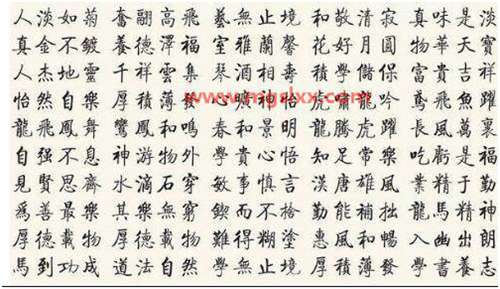 人淡如菊 奮翮高飛 藝無止境 和敬清寂 真味是淡
真金不鍍 養德澤福 室雅蘭馨 花好月圓 物華天寶
人杰地靈 千祥雲集 琴酒相壽 積學儲保 富貴吉祥
怡然自樂 厚積薄發 心曠神怡 虎嘯龍吟 鳶飛魚躍
www.mgslxx.com
龍飛鳳舞 鸞鳳和鳴 春和景明 龍騰虎躍 長風萬裏
自强不息 神游物外 學貴心悟 知足常樂 吃虧是福
見賢思齊 水滴石穿 敏事慎言 漢唐雄風 業精于勤
爲善最樂 其樂無窮 鍥而不捨 勤能補拙 龍馬精神
厚德載物 厚德載物 難得糊塗 惠風和暢 入幽出朗
馬到功成 道法自然 學無止境 厚積薄發 學書養志